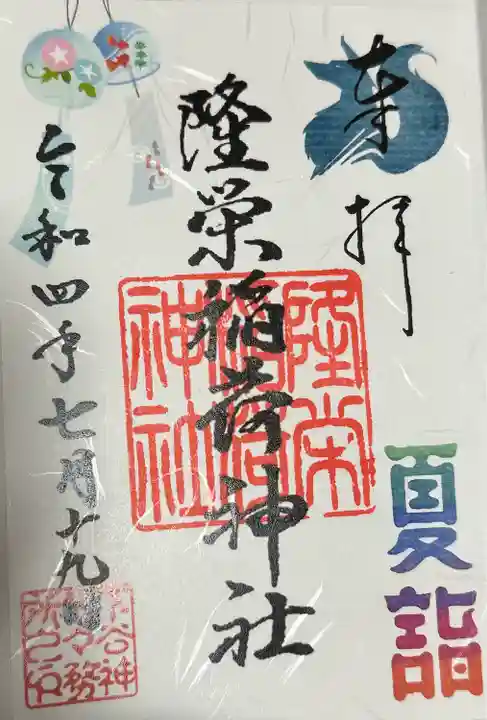 奉拝
夏詣
隆栄稲荷神社
隆栄
稲荷
神社
令和四年七月十九日